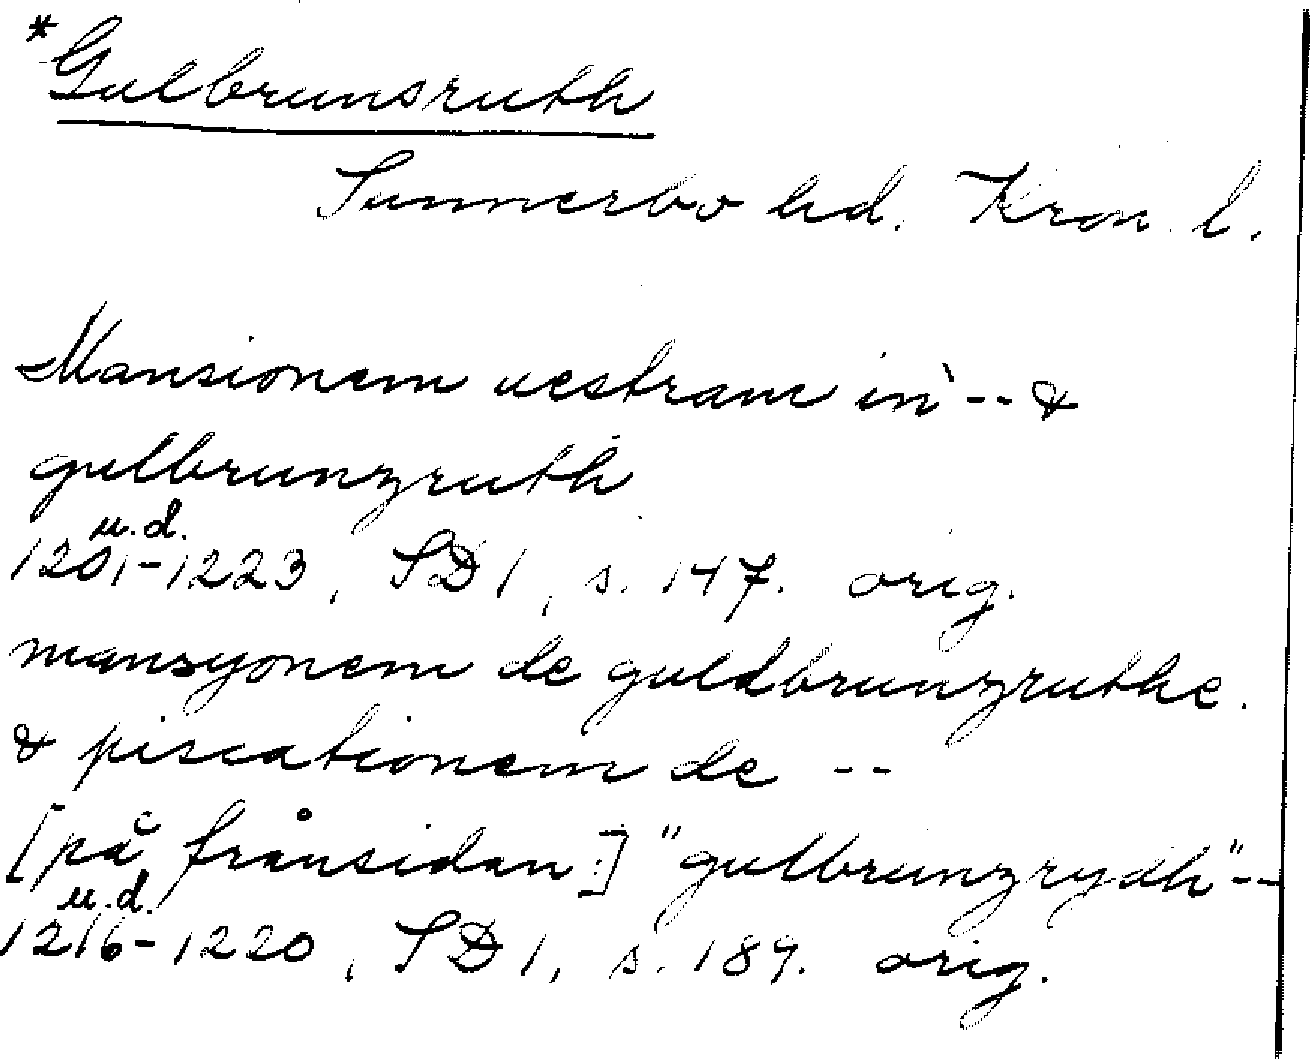 *Gulbrunsruth
Sunnerbo hd. Kron. l.
Mansionem uestram in -- &
gulbrunzruth
u.d.
1201-1223, SD 1, s. 147. orig.
mansyonem de guldbrunzruthe.
& piscationem de --
[på frånsidan:] "gulbrunzrydh" --
u.d.
1216-1220, SD 1, s. 189. orig.